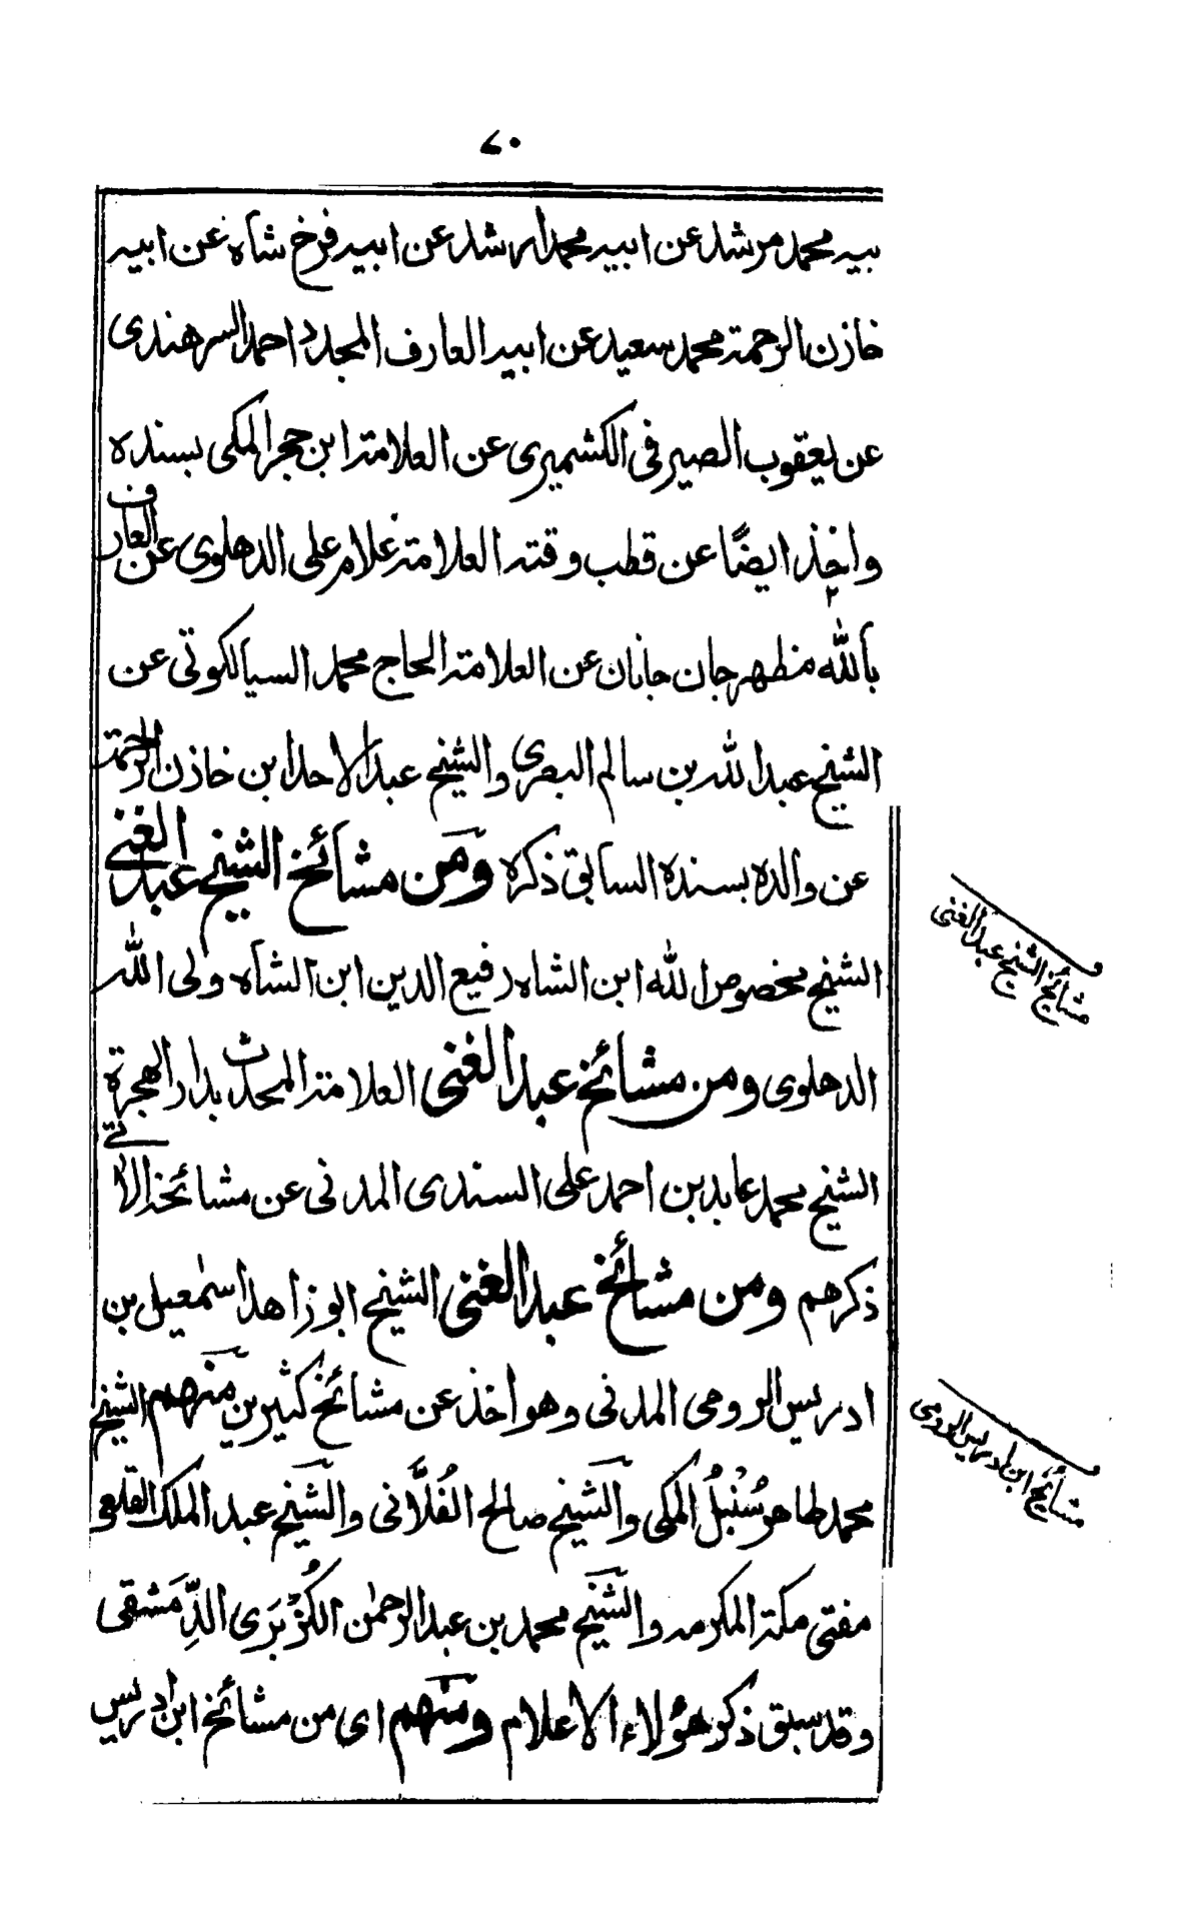 ٧٠
بيه محمد مرشد عن ابيه محمد ارشد عن ابيه فرخ شاه عن ابيه
خازن الرحمة محمد سعيد عن ابيه العارف المجدد احمد السرهندى
عن يعقوب الصيرفى الكشميرى عن العلامة ابن حجر المكى بسنده
واخذ ايضًا عن قطب وقته العلامة غلام على الدهلوى عن العارف
بالله مظهر جان جانان عن العلامة الحاج محمد السيالكوتى عن
الشيخ عبد الله بن سالم البصرى والشيخ عبد الاحد ابن خازن الرحمة
عن والده بسنده السابق ذكره ومن مشائخ الشيخ عبد الغنى
الشيخ مخصوص الله ابن الشاه رفيع الدين ابن الشاه ولى الله
الدهلوى ومن مشائخ عبد الغنى العلامة المحدث بدار الهجرة
الشيخ محمد عابد بن احمد على السندى المدنى عن مشائخه الاتى
ذكرهم ومن مشائخ عبد الغنى الشيخ ابو زاهد اسمٰعيل بن
ادريس الرومى المدنى وهو اخذ عن مشائخ كثيرين منهم الشيخ
محمد طاهر سُنْبُلُ المكى والشيخ صالح الفُلَّانى والشيخ عبد الملك القلعى
مفتى مكة المكرمه والشيخ محمد بن عبد الرحمٰن الكُزْبَرَى الدِّمَشقى
وقد سبق ذكر هؤلاء الاعلام ومنهم اى من مشائخ ابن ادريس
مشائخ الشيخ عبد الغنى
مشائخ ابن ادريس الرومى